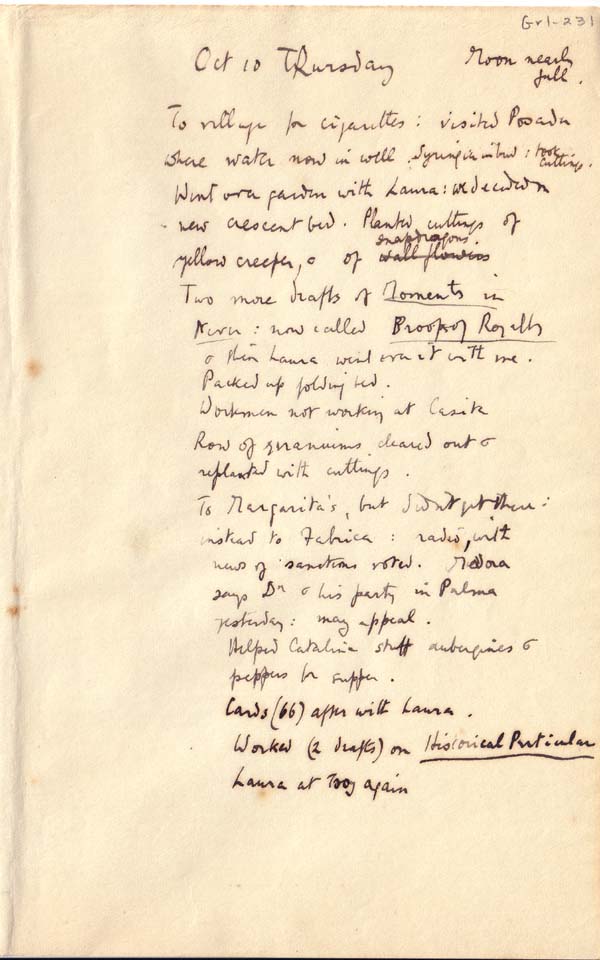 Gr1-231
Oct 10 Thursday
Moon nearly
full.
To village for cigarettes: visited Posada
where water now in well. Syringa in bud: took
cuttings.
Went over garden with Laura: we decided on
new crescent bed. Planted cuttings of
snapdragons.
yellow creeper, & of wallflowers
Two more drafts of Moments in
Never: now called Proofs of Royalty
& then Laura went over it with me.
Packed up folding bed.
Workmen not working at Casita
Row of geraniums cleared out &
replanted with cuttings.
To Margarita's, but didn't get there:
instead to Fabrica: radio, with
news of sanctions voted. Medora
says Dr & his party in Palma
yesterday: may appeal.
Helped Catalina stuff aubergines &
peppers for supper.
Cards (66) after with Laura.
Worked (2 drafts) on Historical Particular
Laura at Troy again